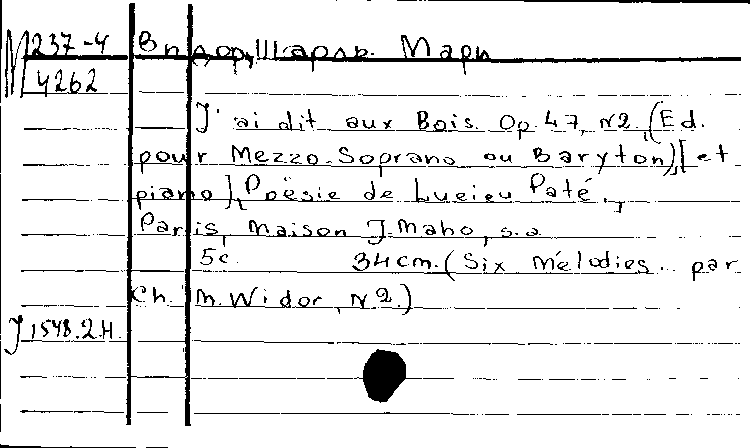 М 237-4 Видор, Шарль. Мари
4262
J'ai dit aux Bois. Op. 47, N2. (Ed.
pour Mezzo-Soprano ou Baryton) [et
piano]. Poësie de Lucien Paté.,
Paris, Maison J. Maho, s.a.
5c. 34cm. (Six Mélodies.. par
Ch. M. Widor, N2.)
J 1548.2.H.